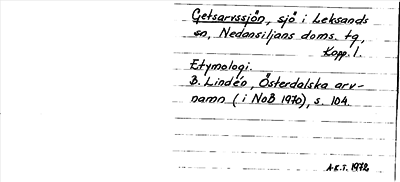 Getsarvssjön, sjö i Leksands
sn, Nedansiljans doms. tg,
Kopp. l.
Etymologi.
B. Lindén, Österdalska arv-
namn (i NoB 1970), s. 104.
A.K.T. 1972